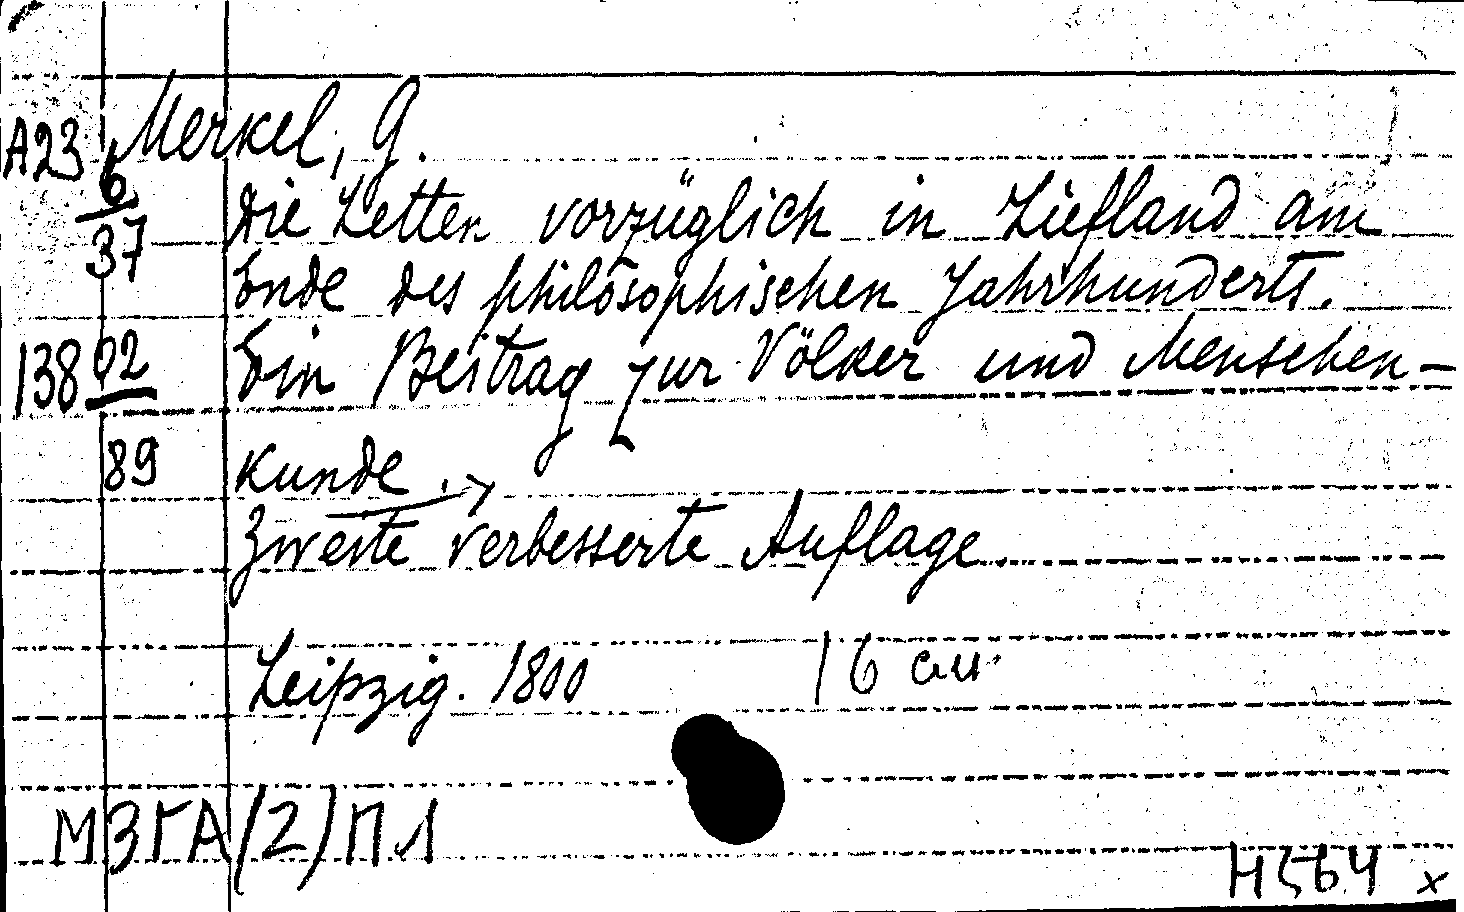 Merkel, G.
A23 6
37
Die Letten vorzüglich in Liefland am
Ende des philosophischen Jahrhunderts.
13802
Ein Beitrag zur Völker und Menschen-
89
kunde.
Zweite verbesserte Auflage.
Leipzig. 1800 16 см
МЗГА(2)П Л
H564 x